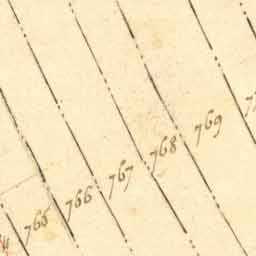 765
766
767
768
769